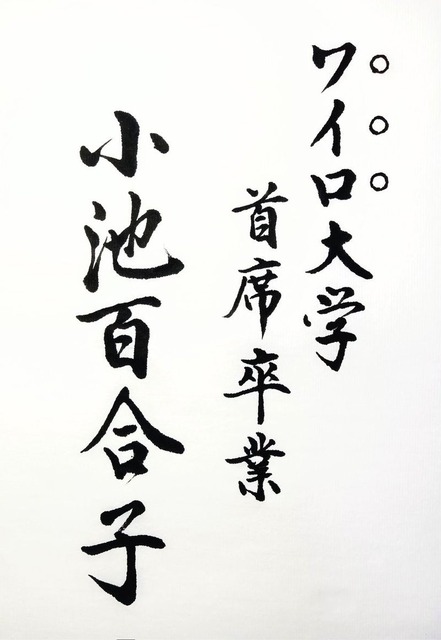 ワイロ大学
首席卒業
小池百合子